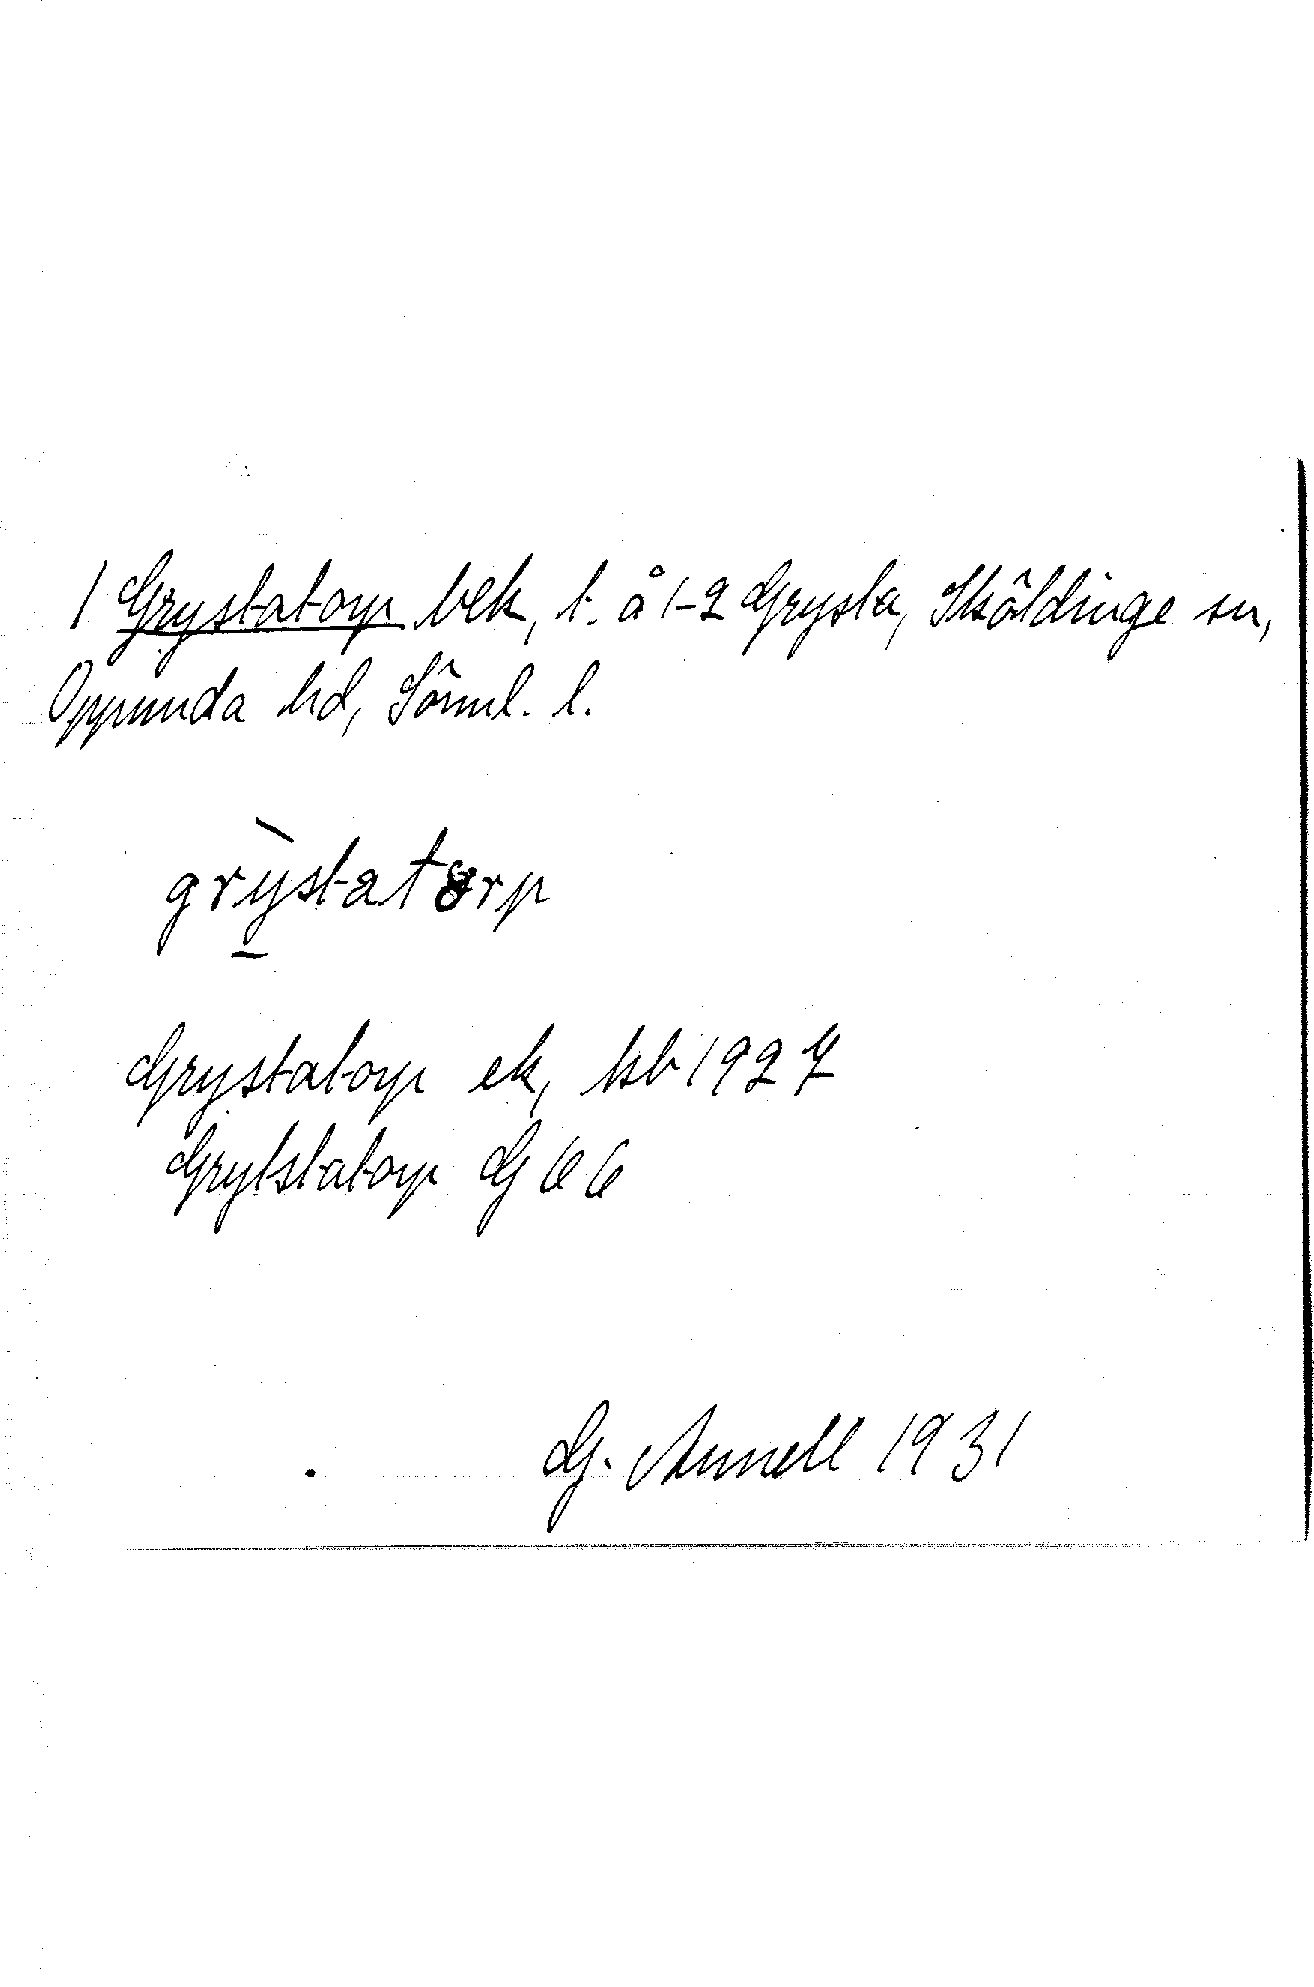 1 Grystatorp bek, t. å 1-2 Grysta, Sköldinge sn,
Oppunda hd, Söml. l.
grỳstatørp
Grystatorp ek, kb 1927
Grytstatorp G 66
G. Annell 1931